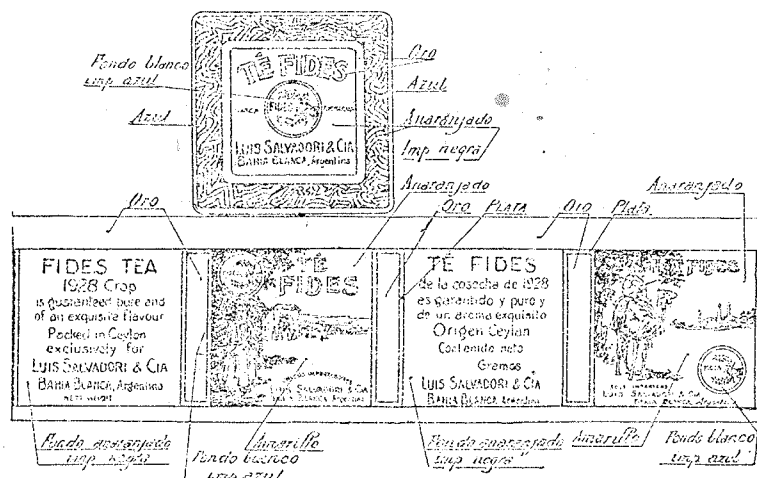 Fondo blanco
imp azul
Azul
TÉ FIDES
FIDES
LUIS SALVADORI & CIA
BAHIA BLANCA, Argentina
Oro
Azul
Anaranjado
Imp negra
Oro
Anaranjado
Oro
PLATA
Oro
Plata
Anaranjado
FIDES TEA
1928 Crop
is guaranteed pure and
of an exquisite flavour
Packed in Ceylon
exclusively for
LUIS SALVADORI & CIA
BAHIA BLANCA, Argentina
NETT WEIGHT
TÉ
FIDES
LUIS SALVADORI & CIA
BAHIA BLANCA, Argentina
TÉ FIDES
de la cosecha de 1928
es garantido y puro y
de un aroma exquisito
Origen Ceylan
Contenido neto
Gramos
LUIS SALVADORI & CIA
BAHIA BLANCA, Argentina
TÉ FIDES
SOLE IMPORTERS
LUIS SALVADORI & CIA
BAHIA BLANCA, Argentina
Fondo anaranjado
imp negra
Fondo blanco
imp azul
Amarillo
Fondo anaranjado
imp negra
Amarillo
Fondo blanco
imp azul